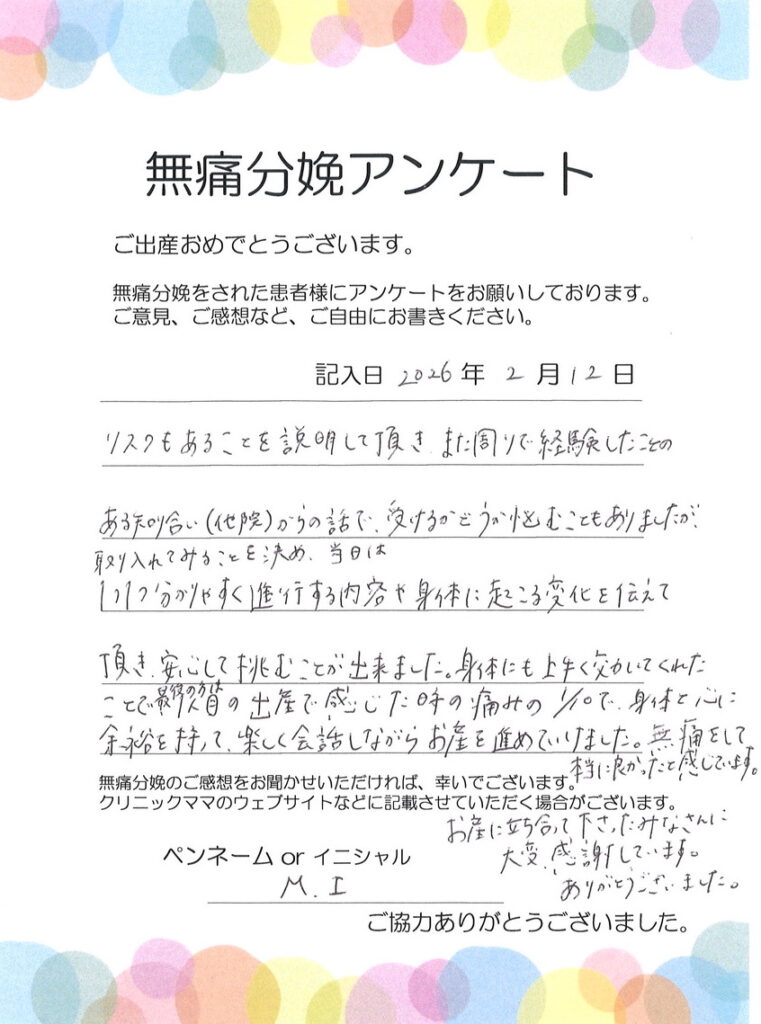 無痛分娩アンケート
ご出産おめでとうございます。
無痛分娩をされた患者様にアンケートをお願いしております。
ご意見、ご感想など、ご自由にお書きください。
記入日 2026 年 2 月 12 日
リスクもあることを説明して頂き、また周りで経験したことの
ある知り合い(他院)からの話で、受けるかどうか悩むこともありましたが、
取り入れてみることを決め、当日は
1つ1つ分かりやすく進行する内容や身体に起こる変化を伝えて
頂き、安心して挑むことが出来ました。身体にも上手く効いてくれた
ことで最後の方は1人目の出産で感じた時の痛みの1/10で、身体と心に
余裕を持って、楽しく会話しながらお産を進めていけました。無痛をして
本当に良かったと感じています。
無痛分娩のご感想をお聞かせいただければ、幸いでございます。
クリニックママのウェブサイトなどに記載させていただく場合がございます。
お産に立ち合って下さったみなさんに
大変、感謝しています。
ありがとうございました。
ペンネーム or イニシャル
M.I
ご協力ありがとうございました。